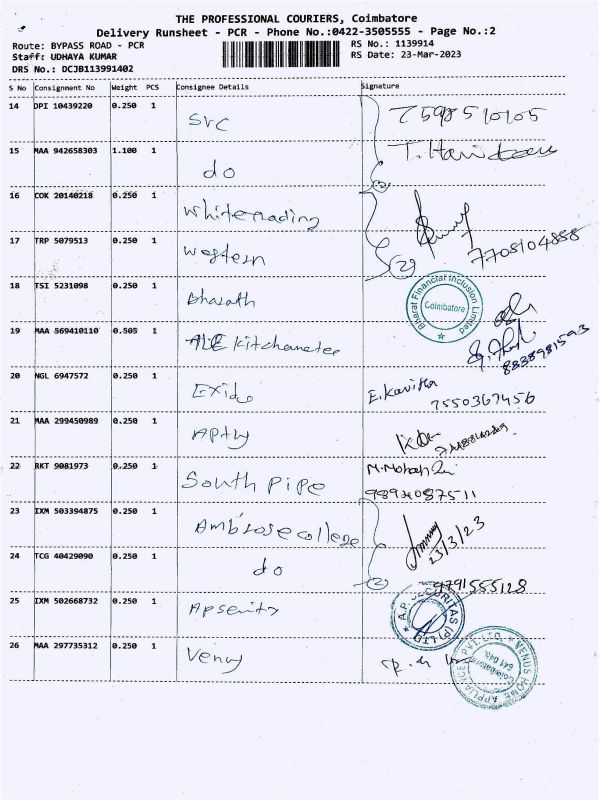 THE PROFESSIONAL COURIERS, Coimbatore
Delivery Runsheet - PCR - Phone No.:0422-3505555 - Page No.:2
Route: BYPASS ROAD - PCR
RS No.: 1139914
Staff: UDHAYA KUMAR
RS Date: 23-Mar-2023
DRS No.: DCJB113991402
S No Consignment No Weight PCS Consignee Details Signature
14 DPI 10439220 0.250 1 SVC 7598510105
15 MAA 942658303 1.100 1 do T.
(2)
16 COK 20140218 0.250 1 Whitetrading
17 TRP 5079513 0.250 1 Western 7708104888
(2)
18 TSI 5231098 0.250 1 Bharath Bharat Financial Inclusion Limited Coimbatore
19 MAA 569410110 0.505 1 kitchametec 8838981593
20 NGL 6947572 0.250 1 Exide E.Kavitha
7550367456
21 MAA 299450989 0.250 1
22 RKT 9081973 0.250 1 South Pipe
9894087511
23 IXM 503394875 0.250 1 Ambrose college 23/3/23
24 TCG 40429090 0.250 1 do (2) 9791555128
25 IXM 502668732 0.250 1 A.P. SECURITAS (P) LTD
26 MAA 297735312 0.250 1 Venus VENUS HOME APPLIANCES PVT. LTD. Coimbatore